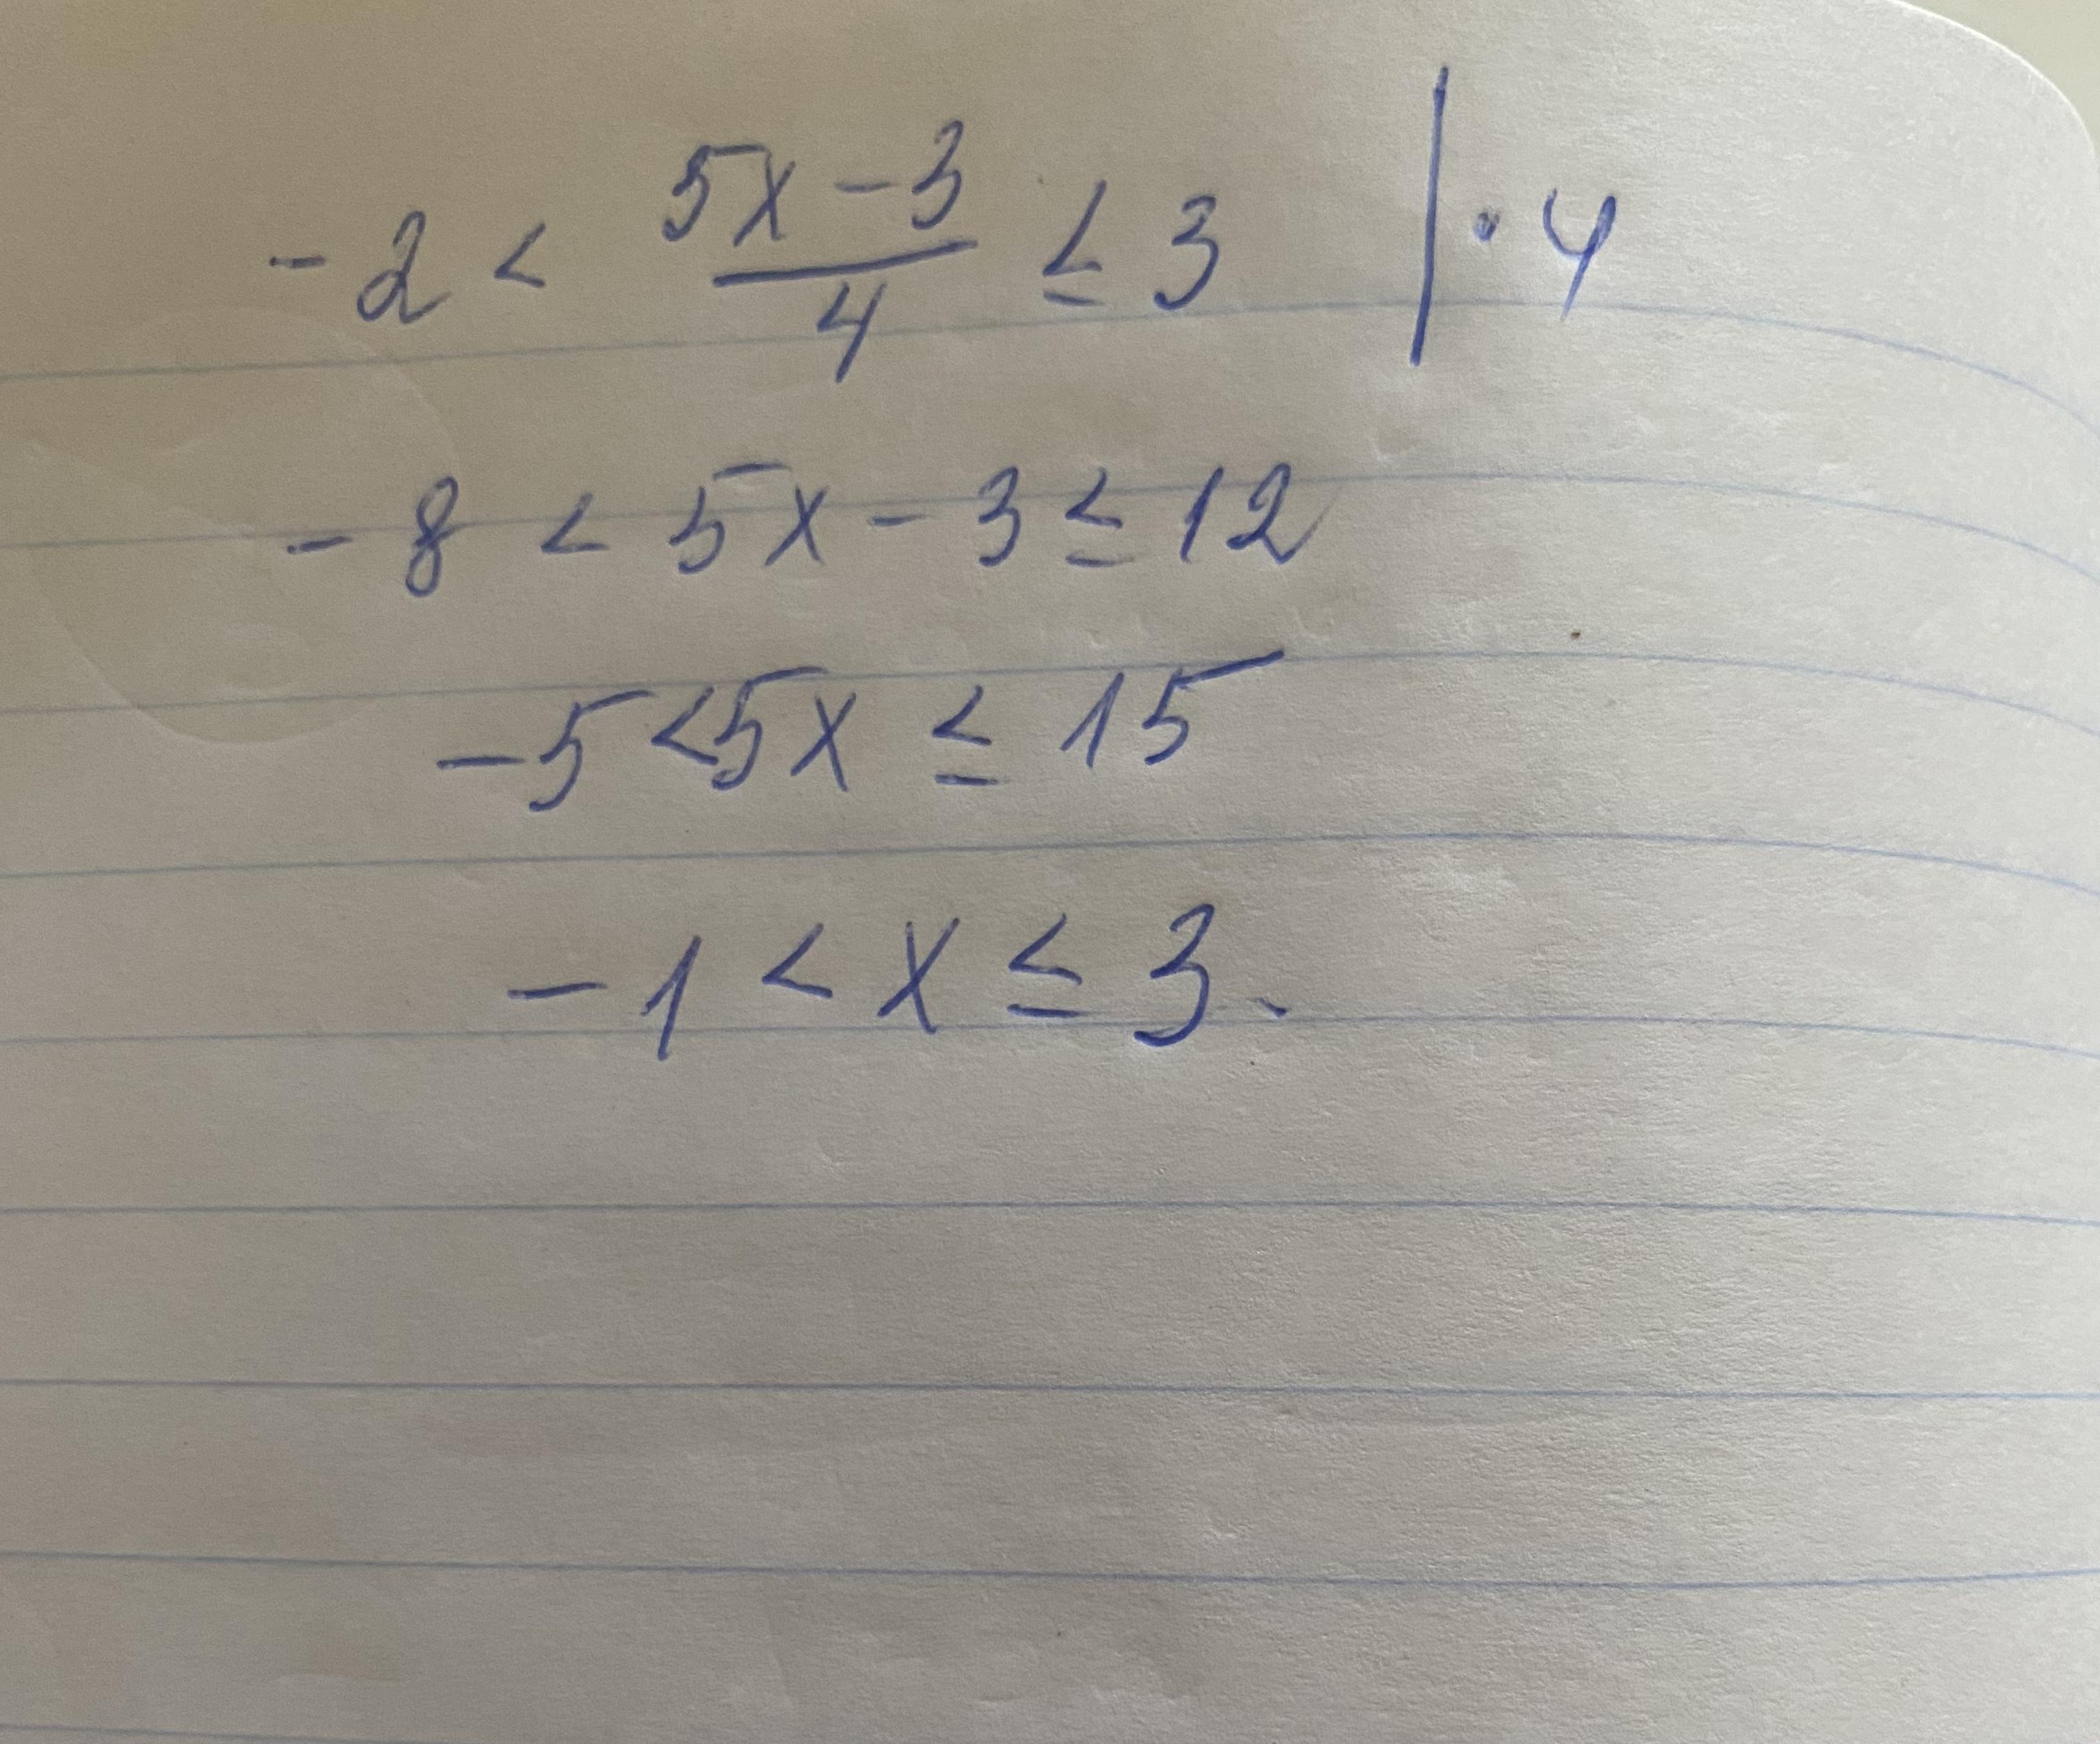 -2 < (5x-3)/4 ≤ 3 | · 4
-8 < 5x - 3 ≤ 12
-5 < 5x ≤ 15
-1 < x ≤ 3.